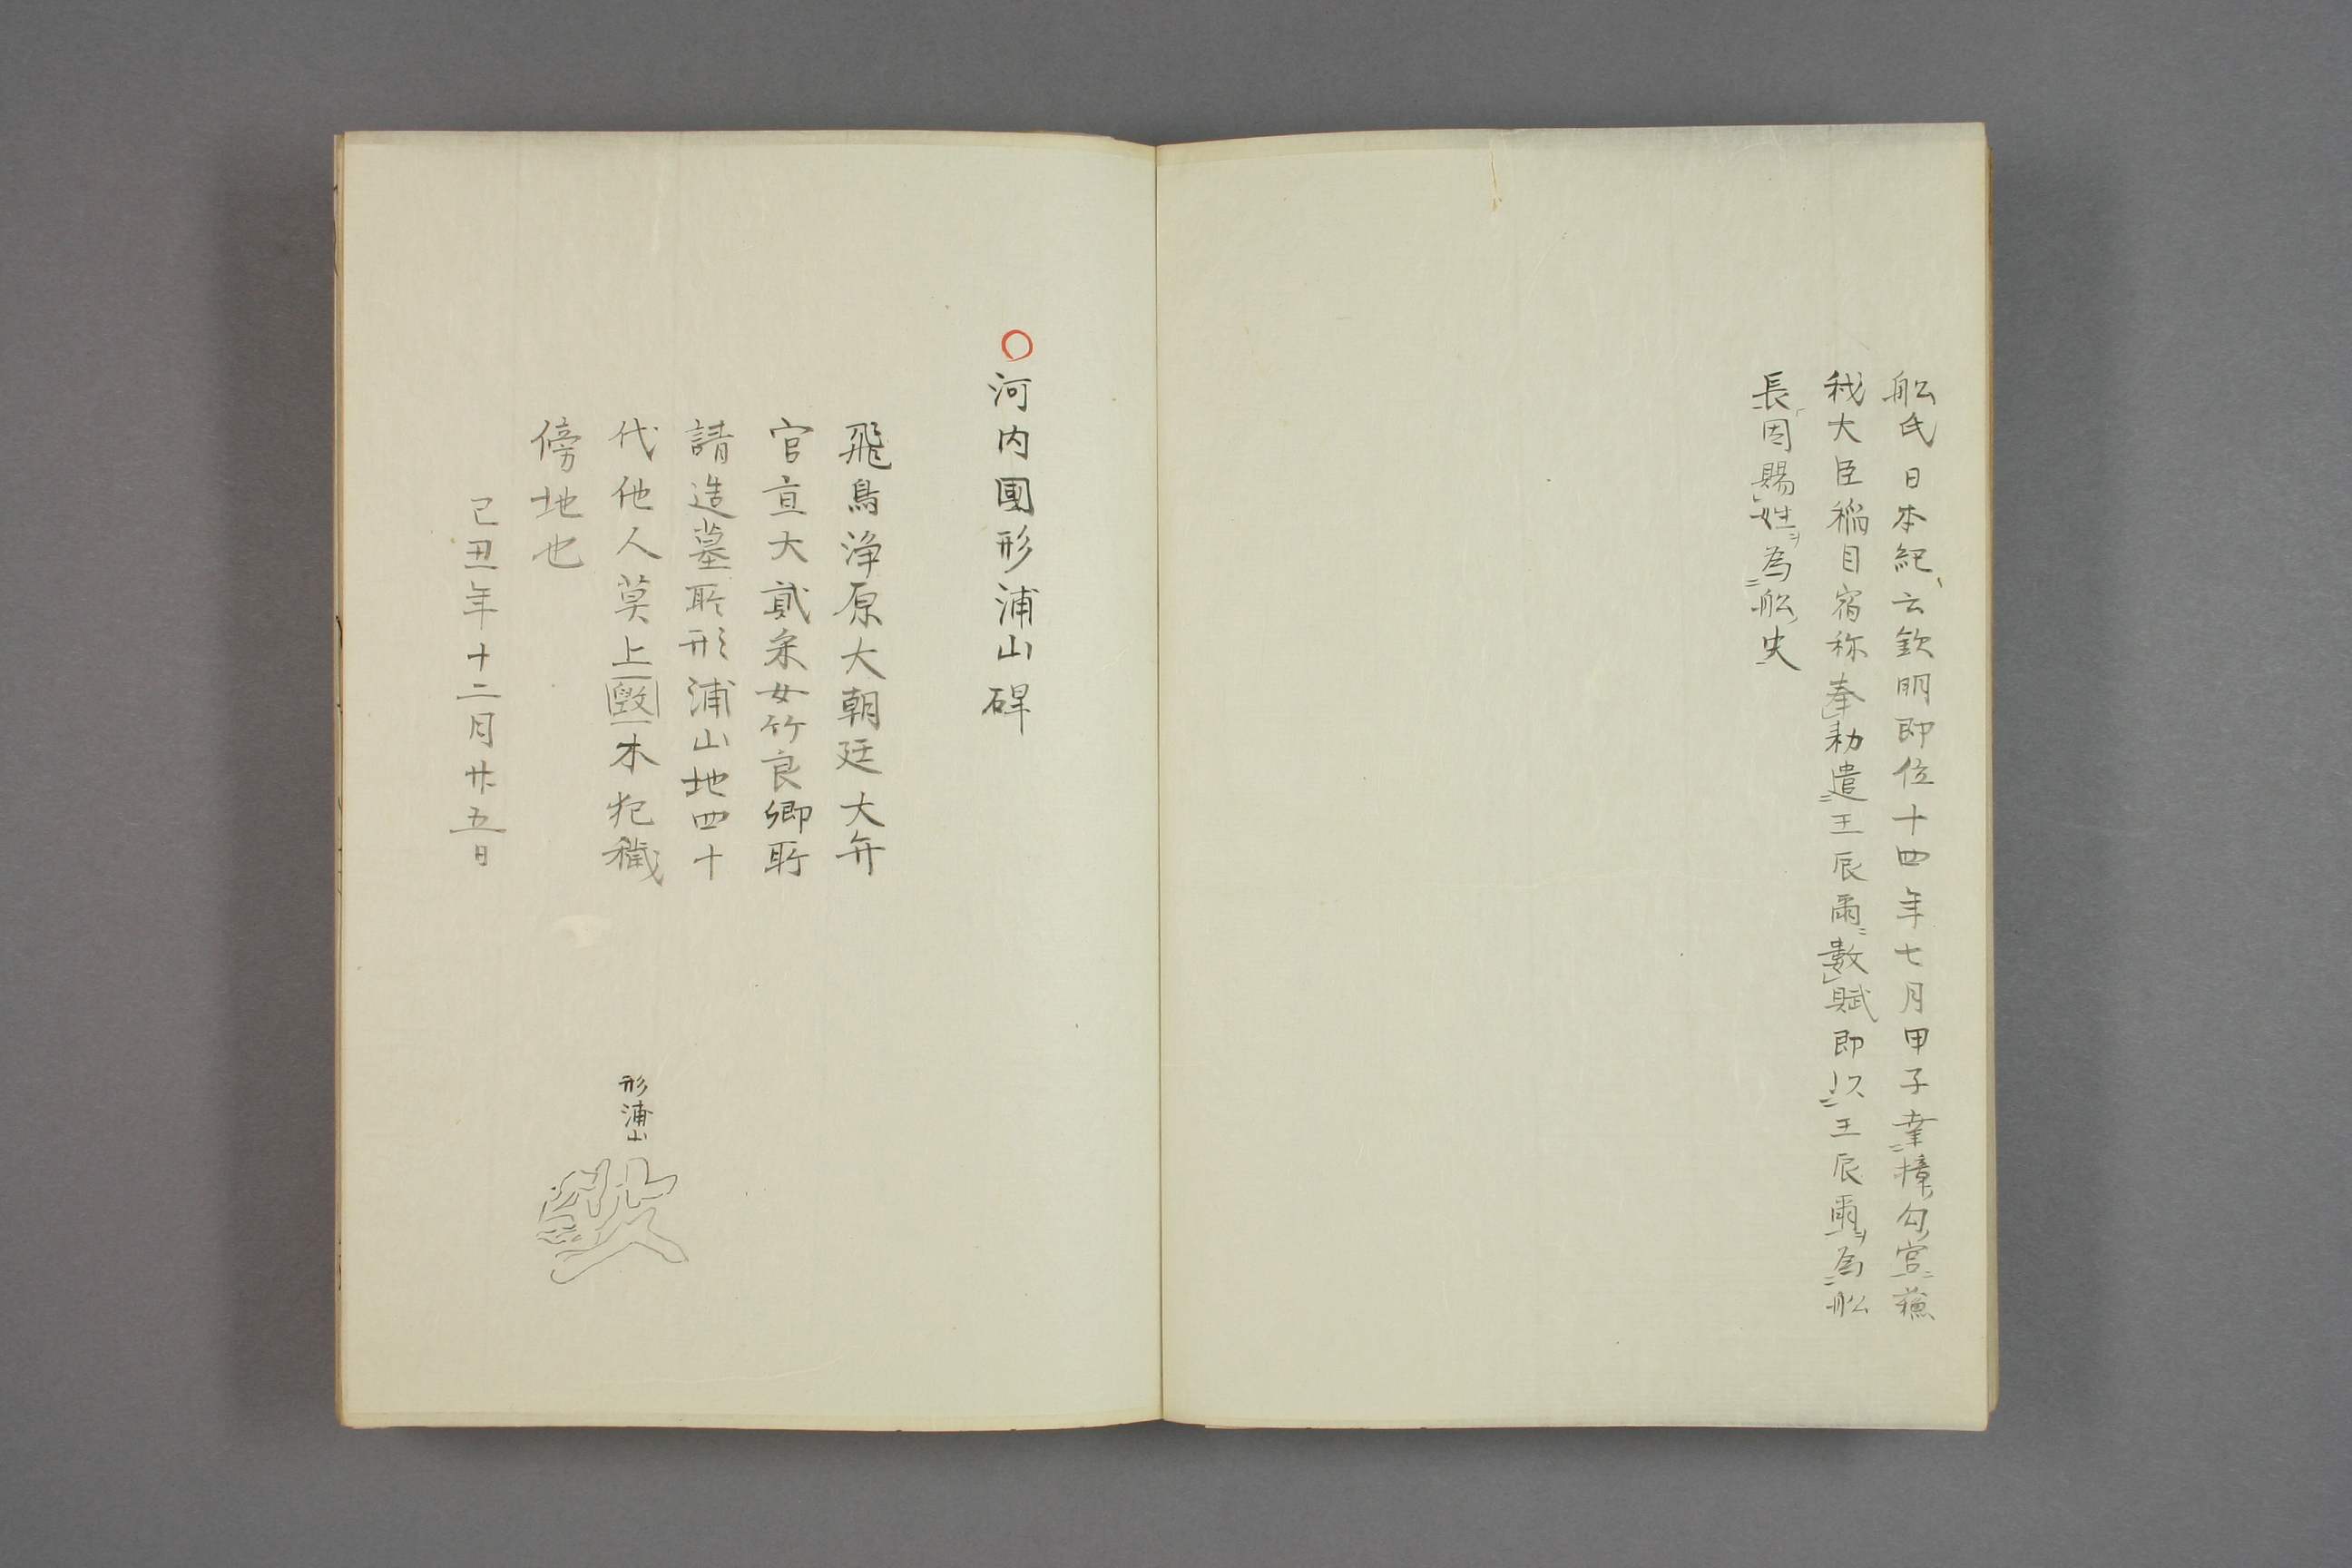 舩氏日本紀云欽明即位十四年七月甲子幸樟勾宮蘓
我大臣稲目宿称奉勅遣王辰爾数賦即以王辰爾為舩
長因賜姓為舩史
○河内國形浦山碑
飛鳥浄原大朝廷大弁
官直大貳采女竹良卿所
請造墓所形浦山地四十
代他人莫上毀木犯穢
傍地也
己丑年十二月廿五日
形浦山